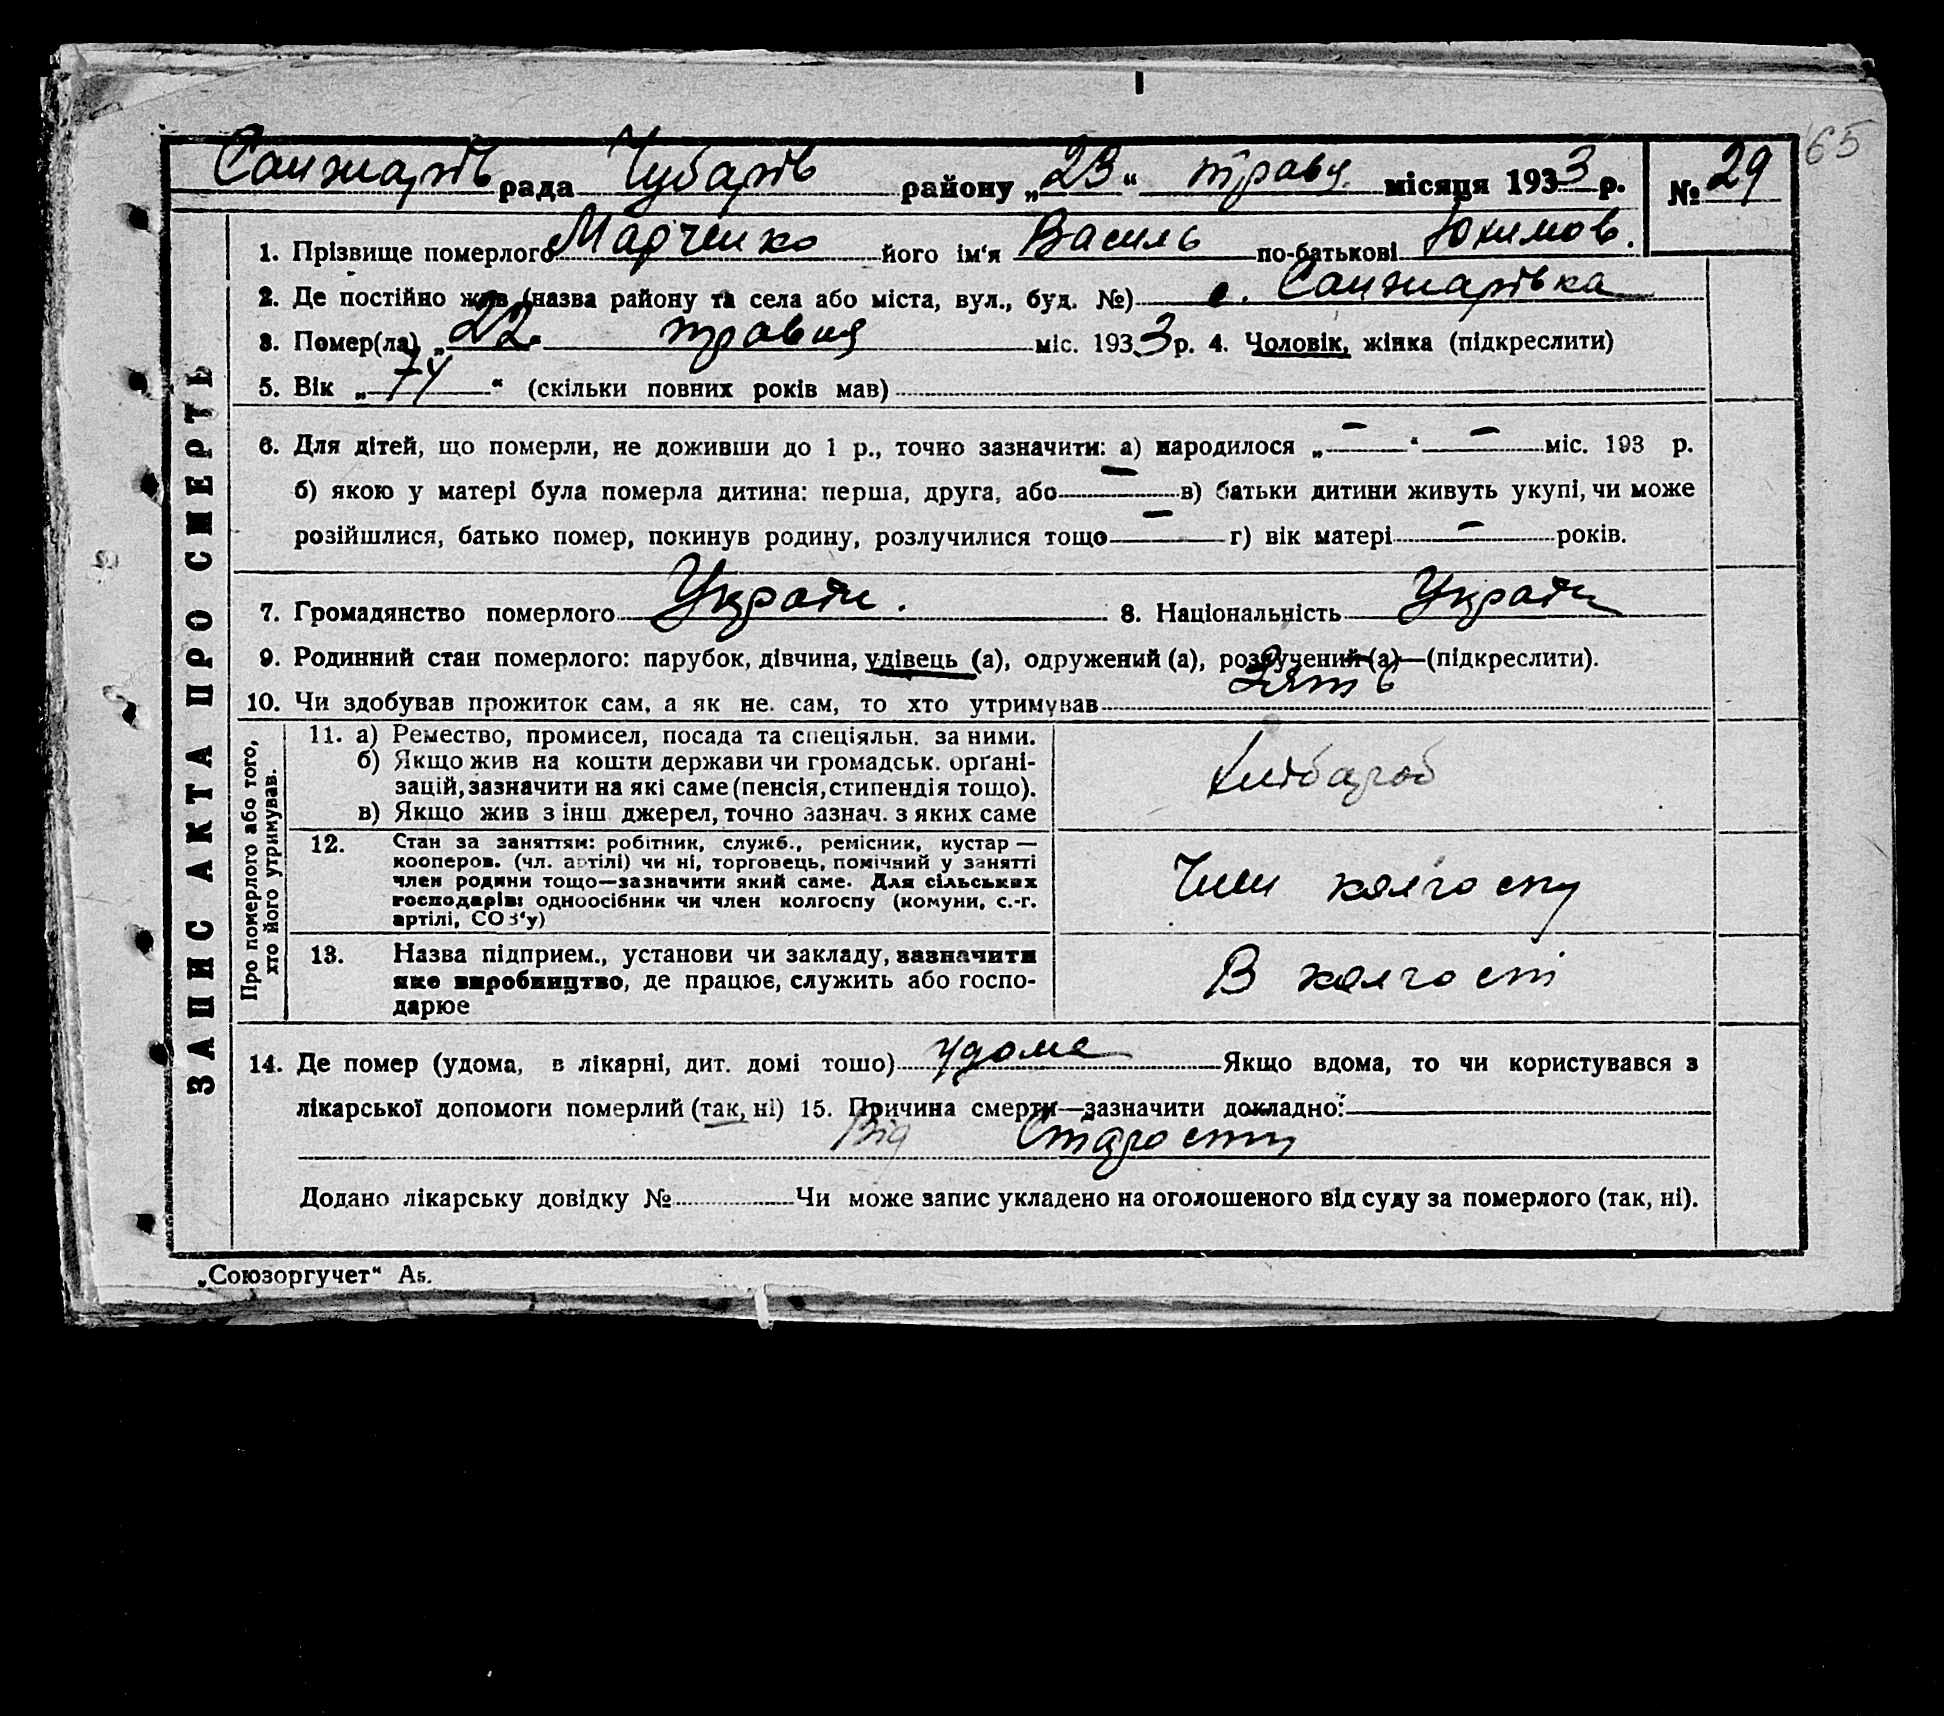 65
Санжарів рада Чубарів району „23“ травн. місяця 1933 р. № 29
ЗАПИС АКТА ПРО СМЕРТЬ
1. Прізвище померлого Марченко його ім'я Василь по-батькові Юхимов.
2. Де постійно жив (назва району та села або міста, вул., буд. №) с. Санжарівка
3. Помер(ла) „22 травня міс. 1933 р. 4. Чоловік, жінка (підкреслити)
5. Вік „74“ (скільки повних років мав)
6. Для дітей, що померли, не доживши до 1 р., точно зазначити: а) народилося „ — “ — міс. 193 р.
б) якою у матері була померла дитина: перша, друга, або — в) батьки дитини живуть укупі, чи може
розійшлися, батько помер, покинув родину, розлучилися тощо — г) вік матері — років.
7. Громадянство померлого Україн. 8. Національність Україн
9. Родинний стан померлого: парубок, дівчина, удівець (а), одружений (а), розлучений (а)—(підкреслити).
10. Чи здобував прожиток сам, а як не. сам, то хто утримував Зять
Про померлого або того,
хто його утримував.
11. а) Ремество, промисел, посада та спеціяльн. за ними.
б) Якщо жив на кошти держави чи громадськ. орґані-
зацій, зазначити на які саме (пенсія, стипендія тощо).
в) Якщо жив з інш. джерел, точно зазнач. з яких саме
Хлібароб
12. Стан за заняттям: робітник, служб., ремісник, кустар —
кооперов. (чл. артілі) чи ні, торговець, помічний у занятті
член родини тощо—зазначити який саме. Для сільських
господарів: одноосібник чи член колгоспу (комуни, с.-г.
артілі, СОЗ'у)
Член колгоспу
13. Назва підприєм., установи чи закладу, зазначити
яке виробництво, де працює, служить або госпо-
дарює
В колгоспі
14. Де помер (удома, в лікарні, дит. домі тошо) удома Якщо вдома, то чи користувався з
лікарської допомоги померлий (так, ні) 15. Причина смерти—зазначити докладно:
Від старости
Додано лікарську довідку № Чи може запис укладено на оголошеного від суду за померлого (так, ні).
„Союзоргучет“ А5.